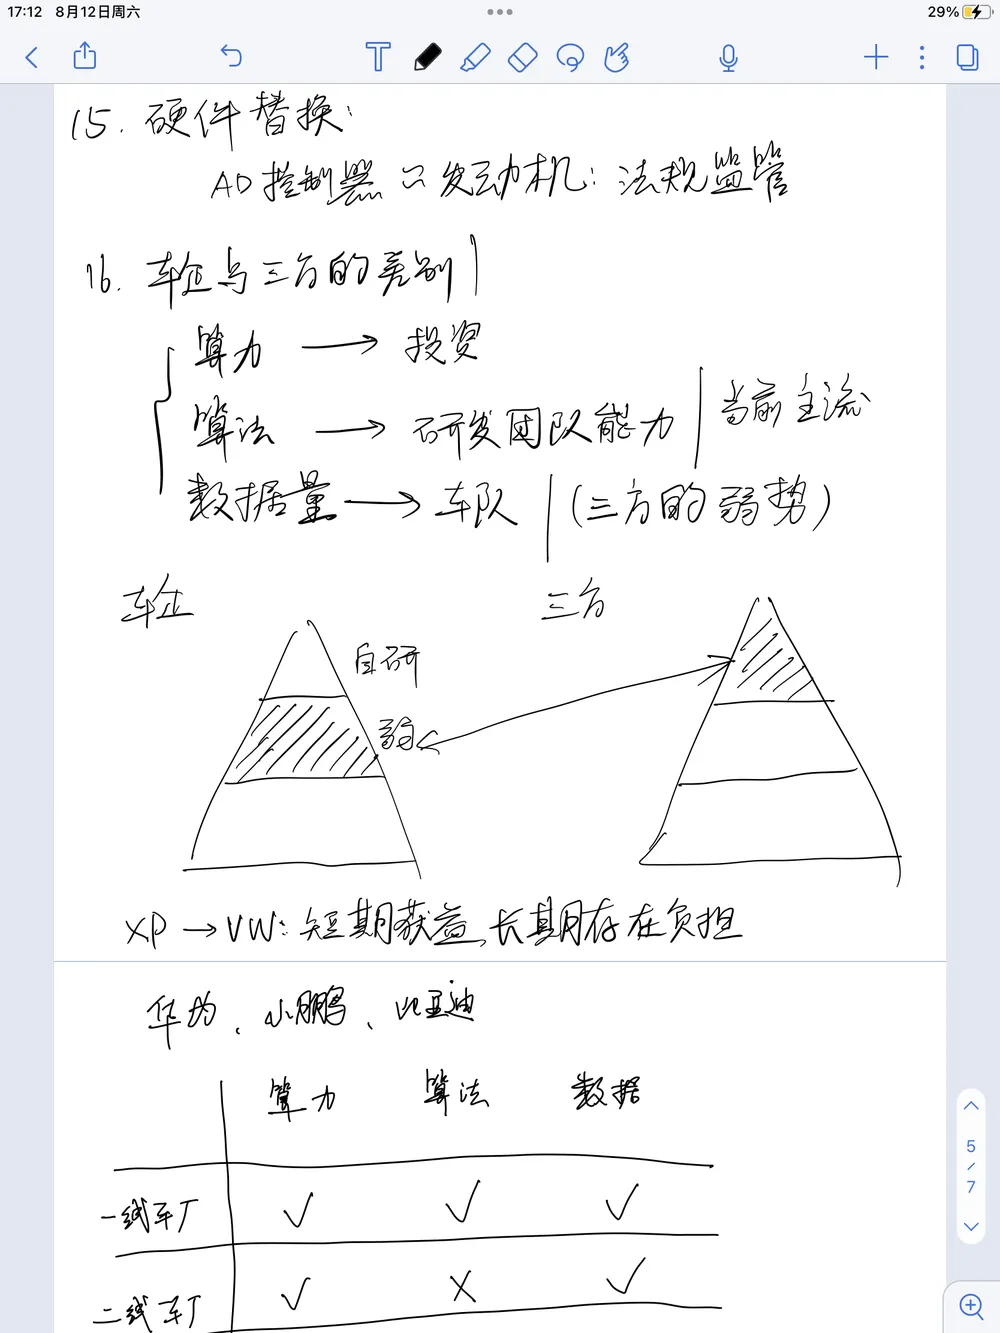 17:12 8月12日周六
29%
15. 硬件替换:
AD控制器 发动机: 法规监管
16. 车企与三方的差别
算力 → 投资
算法 → 研发团队能力 | 当前主流
数据量 → 车队 | (三方的弱势)
车企 三方
自研
弱
XP → VW: 短期获益, 长期存在负担
华为、小鹏、比亚迪
算力 算法 数据
5
/
7
一线车厂 ✓ ✓ ✓
二线车厂 ✓ X ✓